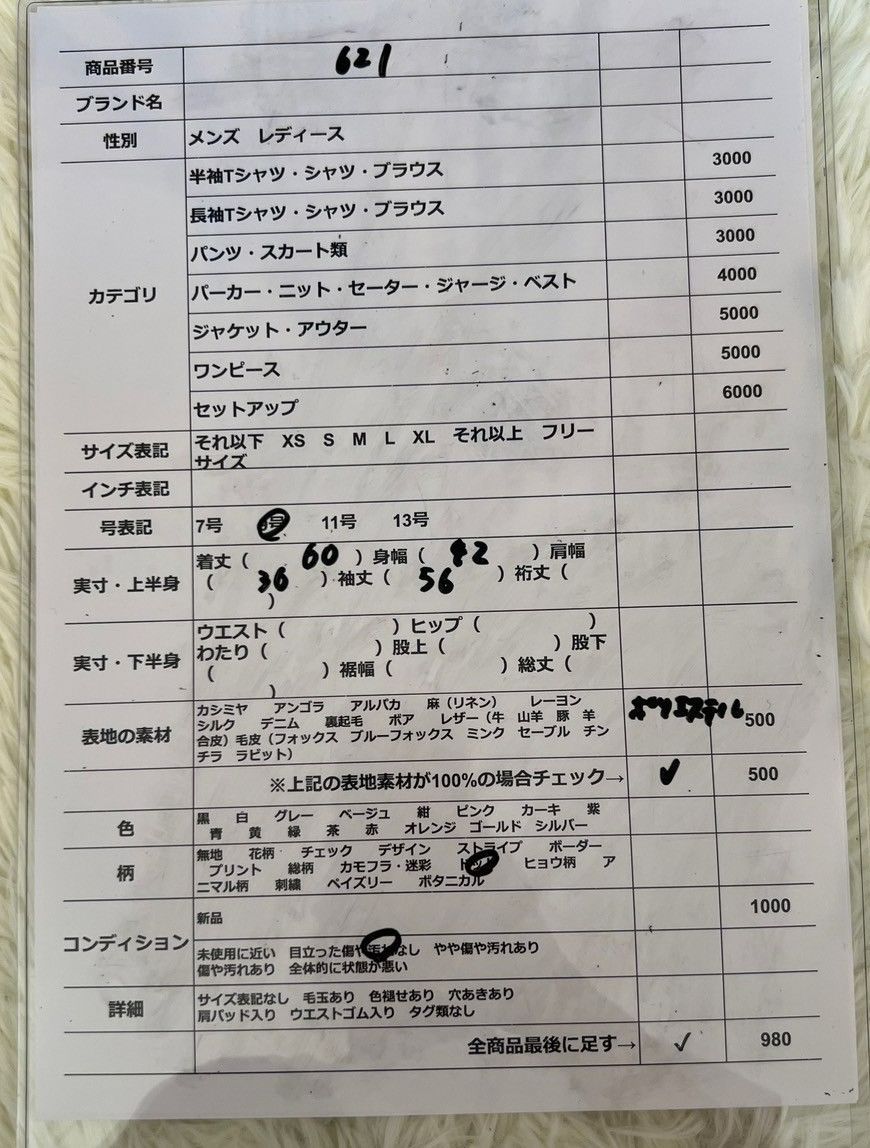 商品番号 621
ブランド名
性別 メンズ レディース
カテゴリ
半袖Tシャツ・シャツ・ブラウス 3000
長袖Tシャツ・シャツ・ブラウス 3000
パンツ・スカート類 3000
パーカー・ニット・セーター・ジャージ・ベスト 4000
ジャケット・アウター 5000
ワンピース 5000
セットアップ 6000
サイズ表記 それ以下 XS S M L XL それ以上 フリー
サイズ
インチ表記
号表記 7号 号 11号 13号
実寸・上半身
着丈（ 60 ）身幅（ 42 ）肩幅
（ 36 ）袖丈（ 56 ）裄丈（
）
実寸・下半身
ウエスト（ ）ヒップ（ ）
わたり（ ）股上（ ）股下
（ ）裾幅（ ）総丈（
）
表地の素材
カシミヤ アンゴラ アルパカ 麻（リネン） レーヨン
シルク デニム 裏起毛 ボア レザー（牛 山羊 豚 羊
合皮）毛皮（フォックス ブルーフォックス ミンク セーブル チン
チラ ラビット）
ポリエステル 500
※上記の表地素材が100%の場合チェック→ ✓ 500
色
黒 白 グレー ベージュ 紺 ピンク カーキ 紫
青 黄 緑 茶 赤 オレンジ ゴールド シルバー
柄
無地 花柄 チェック デザイン ストライプ ボーダー
プリント 総柄 カモフラ・迷彩 ドット ヒョウ柄 ア
ニマル柄 刺繍 ペイズリー ボタニカル
コンディション
新品 1000
未使用に近い 目立った傷や汚れなし やや傷や汚れあり
傷や汚れあり 全体的に状態が悪い
詳細
サイズ表記なし 毛玉あり 色褪せあり 穴あきあり
肩パッド入り ウエストゴム入り タグ類なし
全商品最後に足す→ ✓ 980